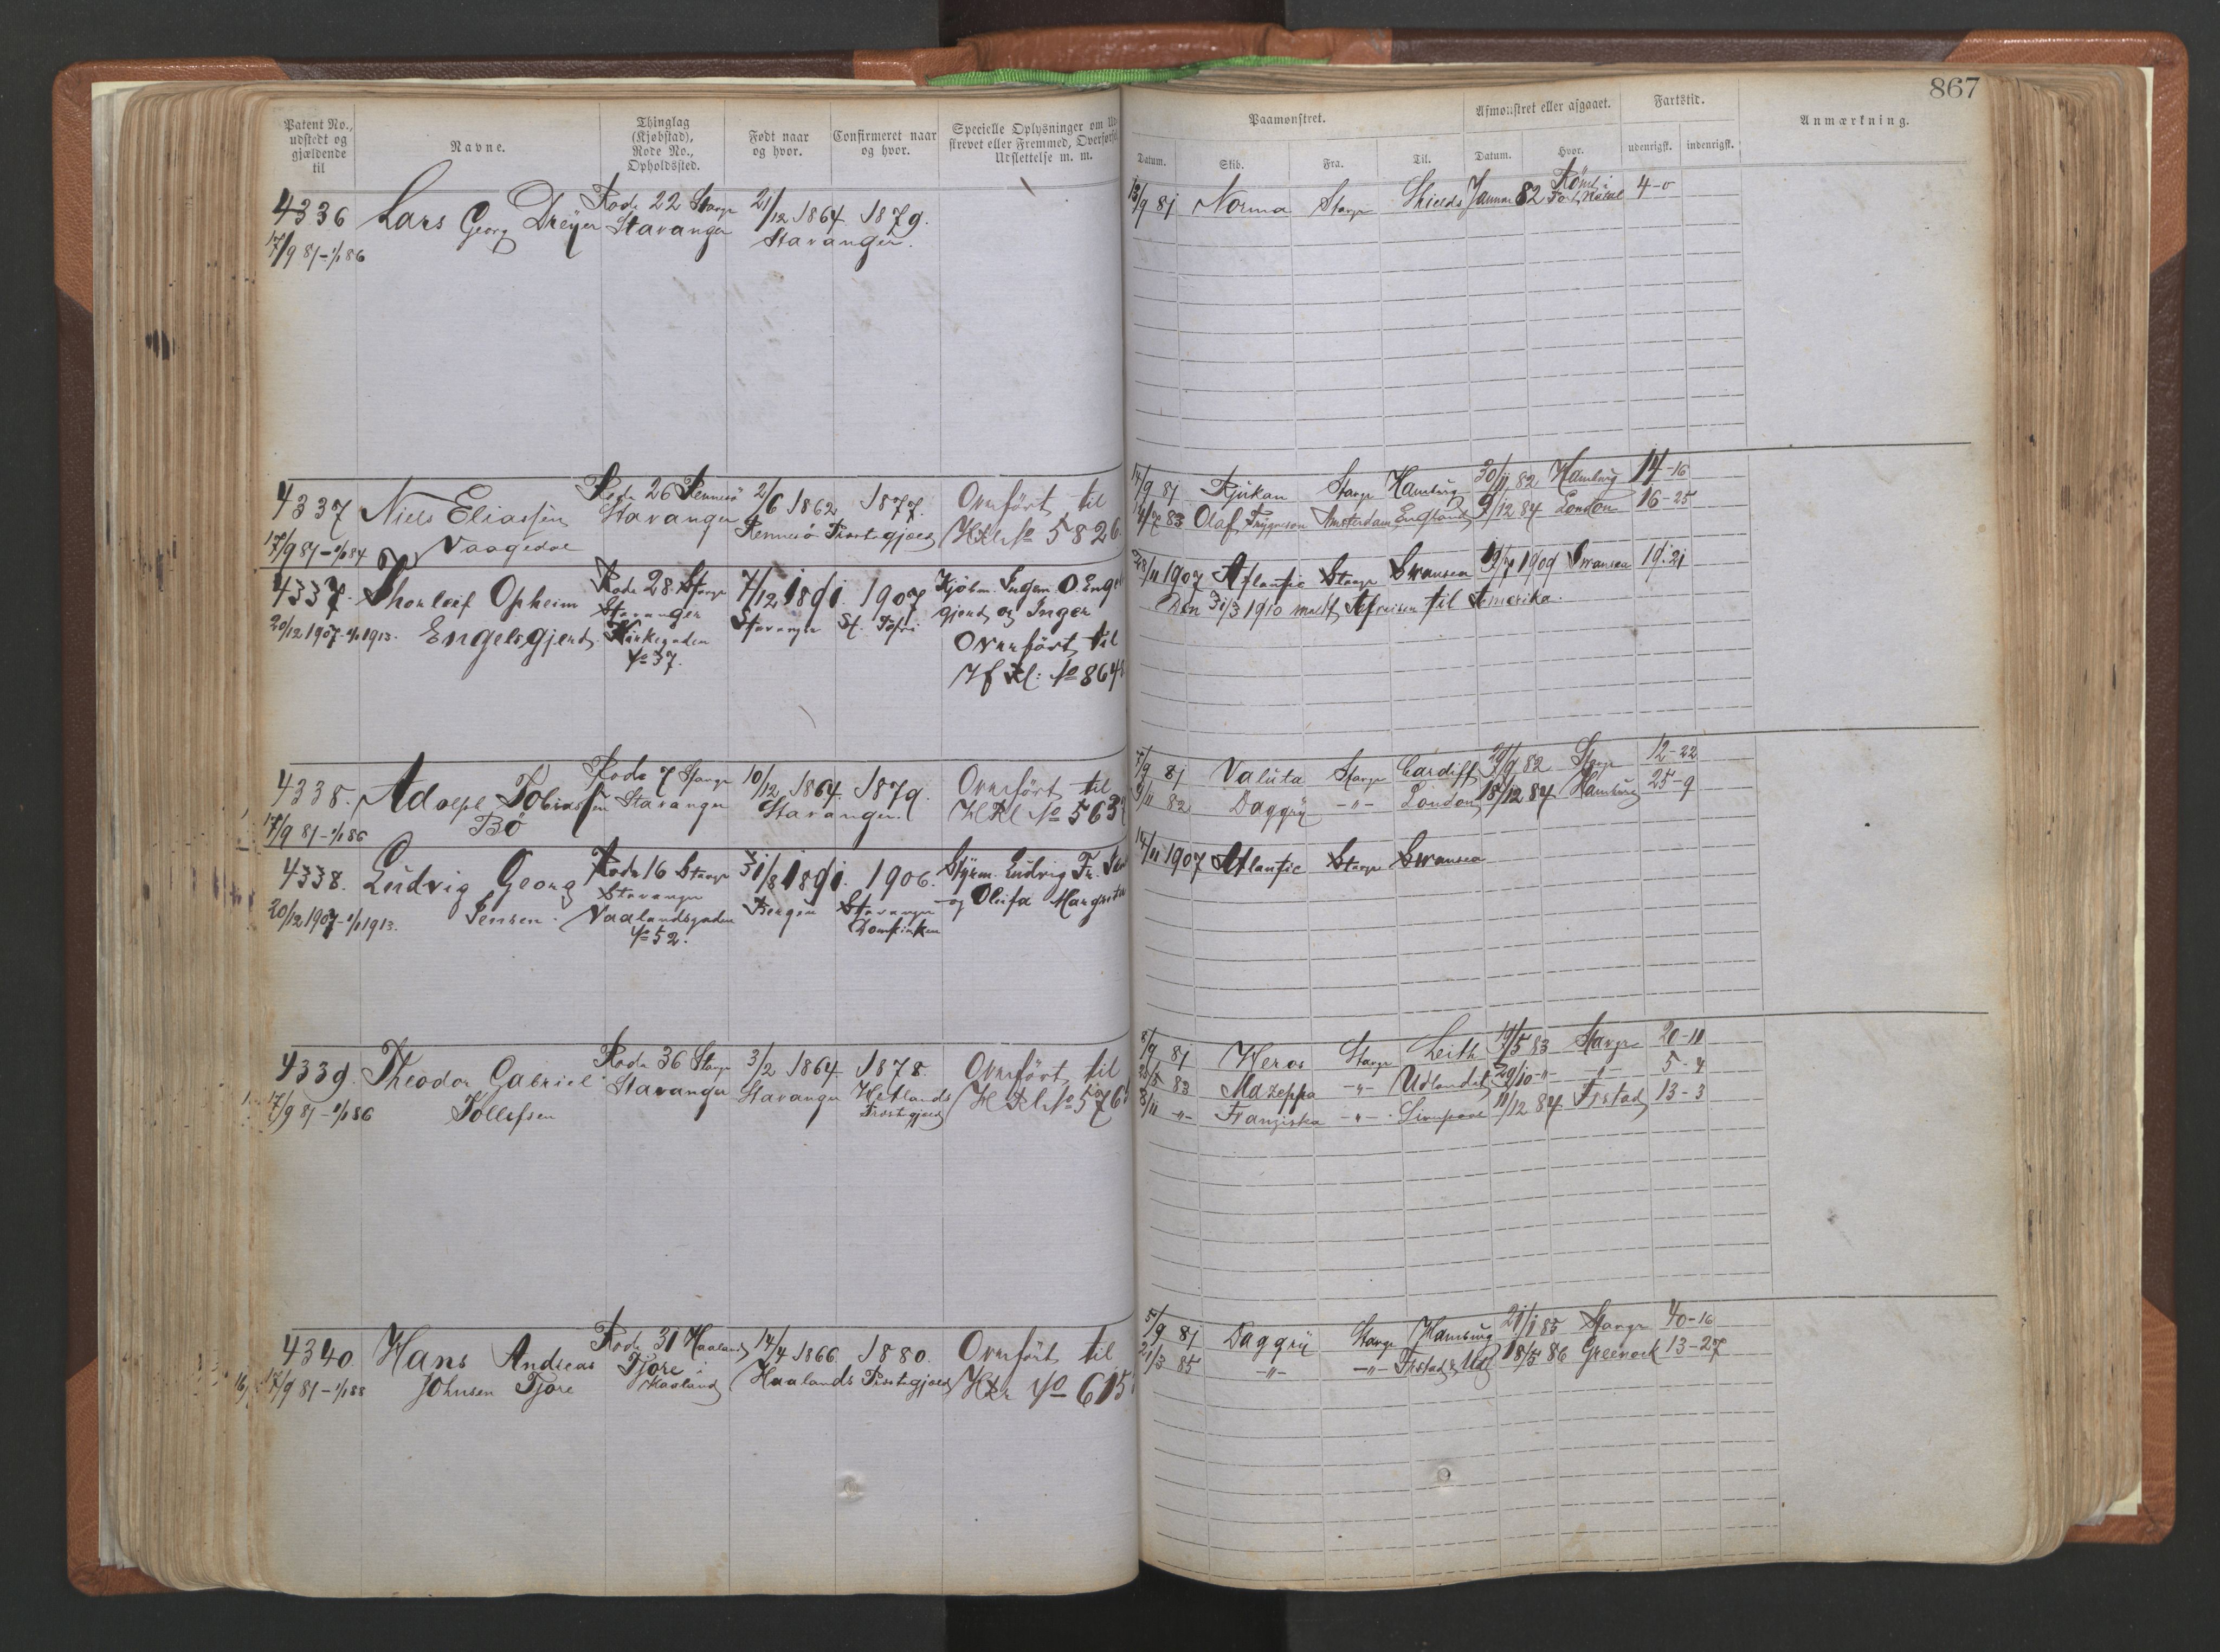 867
Patent No., udstedt og gjældende til
Navne.
Thinglag (Kjøbstad), Rode No., Opholdssted.
Født naar og hvor.
Confirmeret naar og hvor.
Specielle Oplysninger om
strevet eller Fremmed, Overførsel
Udslettelse m. m.
Paamønstret.
Afmønstret eller afgaaet.
Fartstid.
Anmærkning.
Datum. Skib. Fra. Til. Datum. Hvor. udenrigsk. indenrigsk.
4336 Lars Georg Dreyer Rode 22 Stavgr 21/12 1864 1879.
17/9 81-1/1 86 Stavanger Stavanger.
13/9 81 Norma Stavgr Shields Januar 82 4-0
4337 Niels Eliassen Rode 26 Rennesö 2/6 1862 1877. Overført til
17/9 81-1/1 84 Vaagedal Stavanger Rennesö Præstegjæld HKl No 5826
14/9 81 Rjukan Stavgr Hamburg 30/11 82 Hamburg 14-16
83 Olaf Trygveson Amsterdam England 9/12 84 London 16-25
4337. Thorleif Opheim Rode 28 Stavgr 7/12 1891. 1907 Kjøbm. Ingem. O. Engels
20/12 1907-1/1 1913. Engelsgjerd Stavanger Stavanger St. Petri gjerd og Inger
Kirkegaden
No 37.
Overført til
Hf Kl: No 864
28/11 1907 Atlantic Stavgr Swansea 1909 Swansea 19.21
Den 31/3 1910 meldt Afreisen til Amerika.
4338. Adolph Tobiassen Rode 7 Stavgr 10/12 1864 1879. Overført til
17/9 81-1/1 86 Bö Stavanger Stavanger. HKl No 563
7/9 81 Valuta Stavgr Cardiff 82 Stavgr 12-22
82 Daggry -"- London 18/12 84 Hamburg 25-9
4338. Ludvig Georg Rode 16 Stavgr 31/8 1891. 1906. Styrm. Ludvig Fr.
20/12 1907-1/1 1913. Jensen. Stavanger Bergen Stavanger og Olufa Margrete
Vaalandsgaden Domkirken
No 52.
14/11 1907 Atlantic Stavgr Swansea
4339. Theodor Gabriel Rode 36 Stavgr 3/2 1864 1878 Overført til
17/9 81-1/1 86 Tollefsen Stavanger Stavanger Hetlands Præstegjæld HKl No 576
8/9 81 Heros Stavgr Leith 19/5 83 Stavgr 20-11
25/5 83 Mazeppa -"- Udlandet 29/10 -"- -"- 5-4
8/11 -"- Franziska -"- Liverpool 11/12 84 Frstad 13-3
4340. Hans Andreas Rode 31 Haaland 14/4 1866. 1880. Overført til
17/9 81-1/1 88 Johnsen Tjore Tjore i Haaland Haalands Præstegjæld HKl No 615
5/9 81 Daggry Stavgr Hamburg 21/1 85 Stavgr 40-16
21/3 85 -"- -"- Frstad & Udl 18/5 86 Greenock 13-27